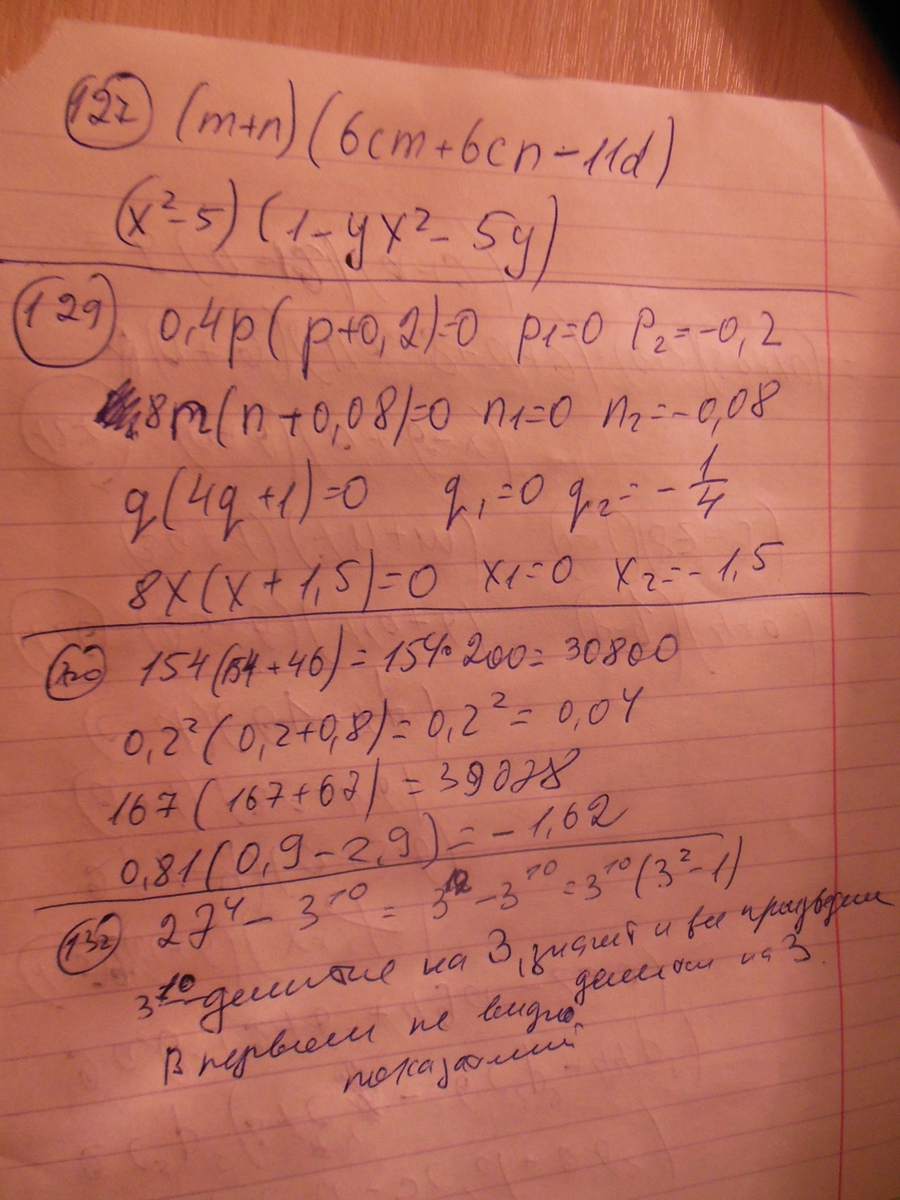 127 (m+n)(6cm+6cn-11d)
(x²-5)(1-yx²-5y)
129 0,4p(p+0,2)=0 p1=0 p₂=-0,2
8n(n+0,08)=0 n1=0 n₂=-0,08
q(4q+1)=0 q₁=0 q₂=-1/4
8x(x+1,5)=0 x1=0 x₂=-1,5
154(154+46)=154·200=30800
0,2²(0,2+0,8)=0,2²=0,04
167(167+67)=39078
0,81(0,9-2,9)=-1,62
132 27⁴-3¹⁰=3¹²-3¹⁰=3¹⁰(3²-1)
3¹⁰ делится на 3, значит и все
делится на 3.
В первом не видно
показателей